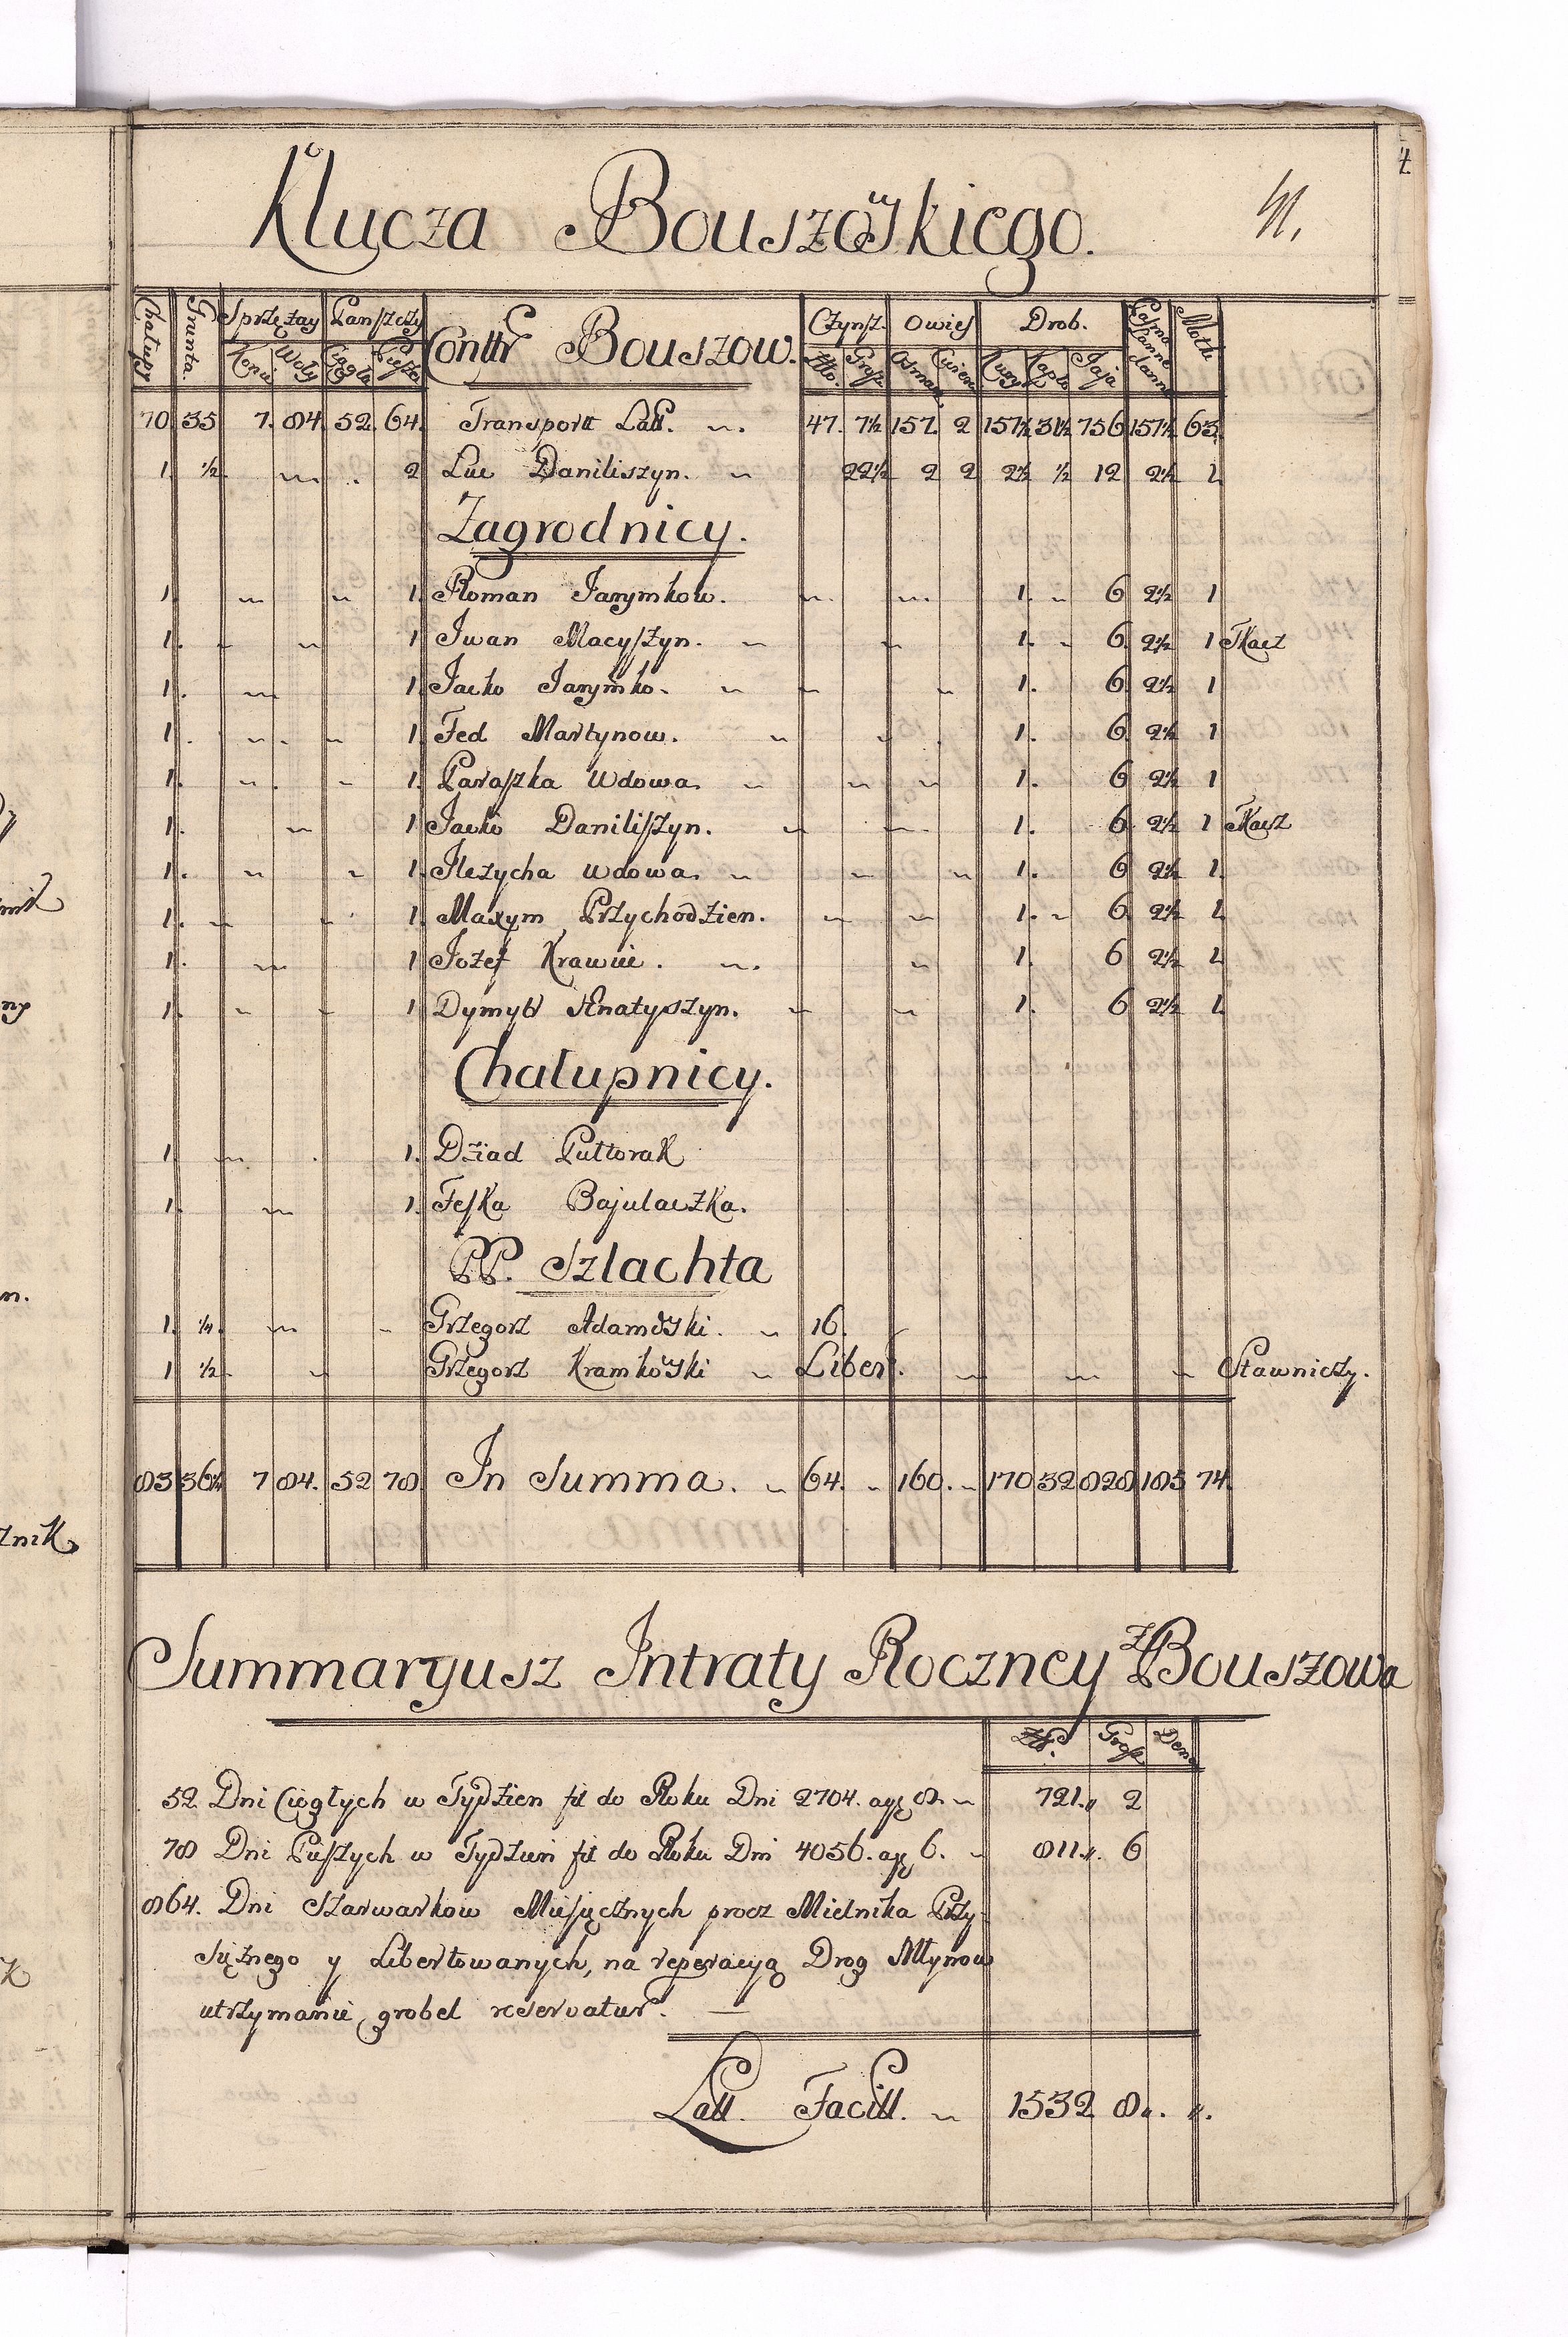 4.
Klucza Bouszowskiego.
Chałupy Grunta. Sprzężay Panszczy Conttr Bouszow. Czynsz. Owies Drob. Motki
Konie Woły Ciągła Piesza Zło. Grosz Osmac Cwierc Kury Kapło Jaja
70 35 7. 84. 52. 64. Transportt Latt. 47. 7½ 157. 2 157½ 31½ 756 157½ 63.
1. ½ 2 Luc Daniliszyn. 22½ 2 2 2½ ½ 12 2½ 1
Zagrodnicy.
1. 1. Roman Jarymkow. 1. 6 2½ 1
1. 1 Iwan Macyszyn. 1. 6 2½ 1 Tkacz
1. 1 Jacko Jarymko. 1. 6 2½ 1
1. 1 Fed Martynow. 1. 6 2½ 1
1. 1. Paraszka Wdowa. 1. 6 2½ 1
1. 1 Jacko Daniliszyn. 1. 6 2½ 1 Tkacz
1. 1. Ilezycha Wdowa. 1. 6 2½ 1.
1. 1. Maxym Przychodzien. 1. 6 2½ 1
1. 1 Jozef Krawiec. 1. 6 2½ 1
1. 1 Dymytr Hnatyszyn. 1. 6 2½ 1
Chałupnicy.
1. 1. Dziad Puttorak
1. 1. Feska Bajulaczka.
PP. Szlachta
1. ¼. Grzegorz Adamowski. 16.
1 ½ Grzegorz Kramkowski Libert. Stawniczy.
83 36¼ 7 84. 52 78 In Summa. 64. 160. 170 32 828 185 74.
Summaryusz Intraty Roczney z Bouszowa
Złł. Grosz Dena
52. Dni Ciągłych w Tydzien fit do Roku Dni 2704. agr 8. 721. 2
78 Dni Pieszych w Tydzien fit do Roku Dni 4056. agr 6. 811. 6
864. Dni Szarwarkow Miesięcznych procz Mielnika Przy-
siężnego y Libertowanych, na reperacyą Drog Młynow
utrzymanie grobel reservatur.
Latt. Facitt. 1532 8.